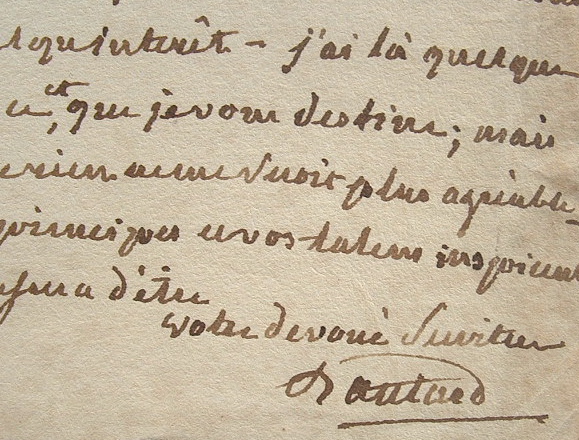 quinterêt - j'ai là quelque
et que je vous destine; mais
rien ne me seroit plus agréable
principes et vos talens inspirent
d'être
votre devoué serviteur